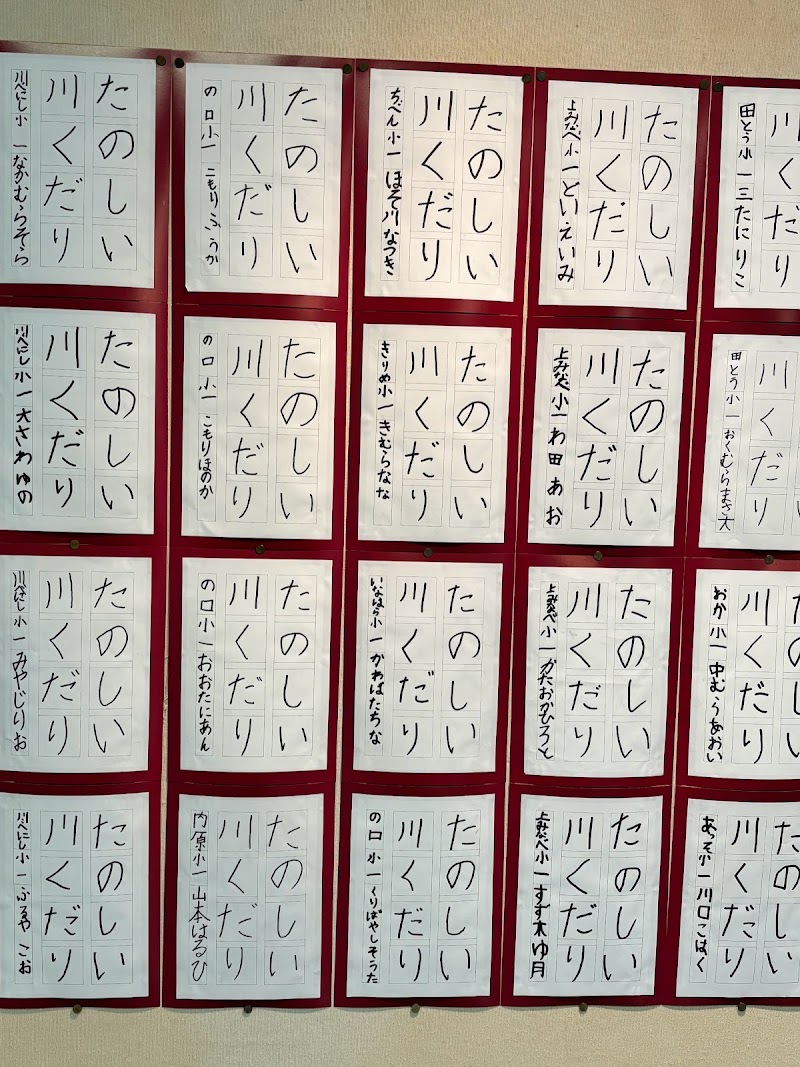 川くだり
田とう小一三たにりこ
たのしい
川くだり
上みなべ小一といえいみ
たのしい
川くだり
ちべん小一ほそ川なつき
たのしい
川くだり
の口小一こもりふうか
たのしい
川くだり
川べにし小一なかむらそら
川くだり
田とう小一おくむらまさ大
たのしい
川くだり
上みなべ小一わ田あお
たのしい
川くだり
きりめ小一きむらなな
たのしい
川くだり
の口小一こもりほのか
たのしい
川くだり
川べにし小一大さわゆの
たのしい
川くだり
おか小一中むらあおい
たのしい
川くだり
上みなべ小一かたおかひろと
たのしい
川くだり
いなはら小一かわばたちな
たのしい
川くだり
の口小一おおたにあん
たのしい
川くだり
川べにし小一みやじりお
たのしい
川くだり
あっそ小一川口こはく
たのしい
川くだり
上みなべ小一すず木ゆ月
たのしい
川くだり
の口小一くりばやしそうた
たのしい
川くだり
内原小一山本はるひ
たのしい
川くだり
川べにし小一ふるやこお